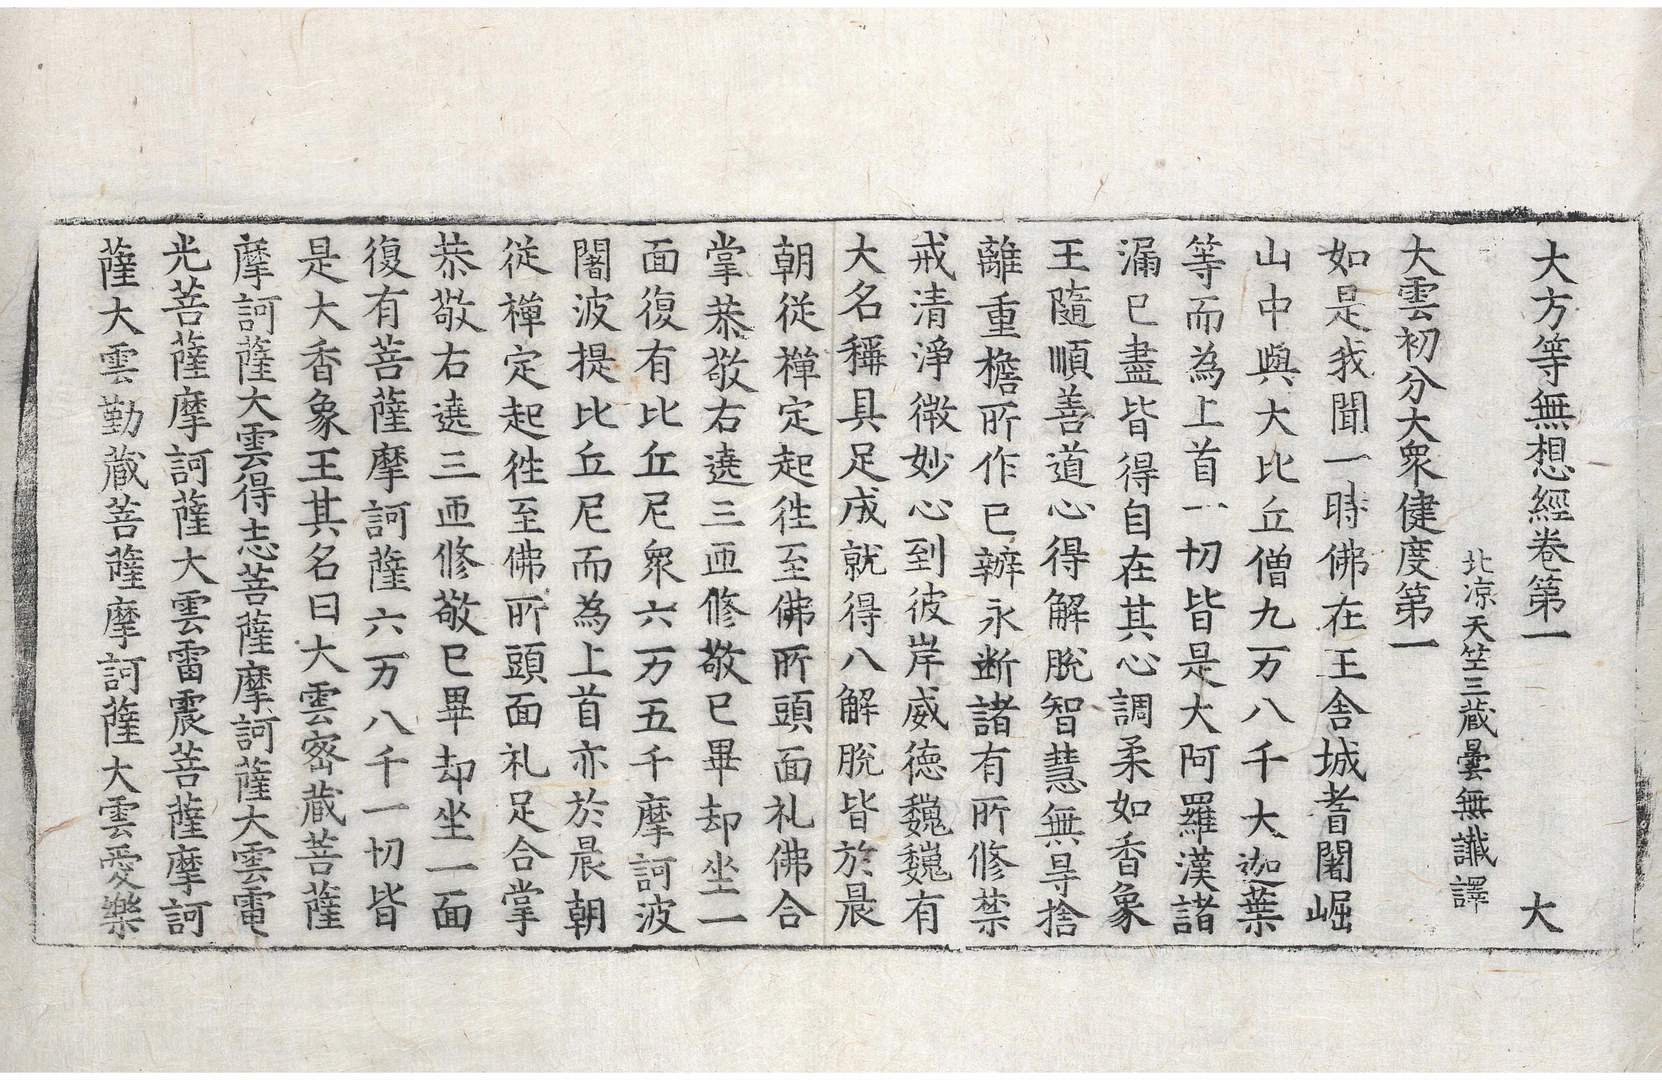 大方等無想經卷第一 大
北涼天竺三藏曇無讖譯
大雲初分大衆健度第一
如是我聞一時佛在王舍城耆闍崛
山中與大比丘僧九万八千大迦葉
等而為上首一切皆是大阿羅漢諸
漏已盡皆得自在其心調柔如香象
王隨順善道心得解脫智慧無㝵捨
離重檐所作已辦永断諸有所修禁
戒清淨微妙心到彼岸威德巍巍有
大名稱具足成就得八解脫皆於晨
朝從禪定起往至佛所頭面礼佛合
掌恭敬右遶三匝修敬已畢却坐一
面復有比丘尼衆六万五千摩訶波
闍波提比丘尼而為上首亦於晨朝
從禪定起往至佛所頭面礼足合掌
恭敬右遶三匝修敬已畢却坐一面
復有菩薩摩訶薩六万八千一切皆
是大香象王其名曰大雲密藏菩薩
摩訶薩大雲得志菩薩摩訶薩大雲電
光菩薩摩訶薩大雲雷震菩薩摩訶
薩大雲勤藏菩薩摩訶薩大雲愛樂